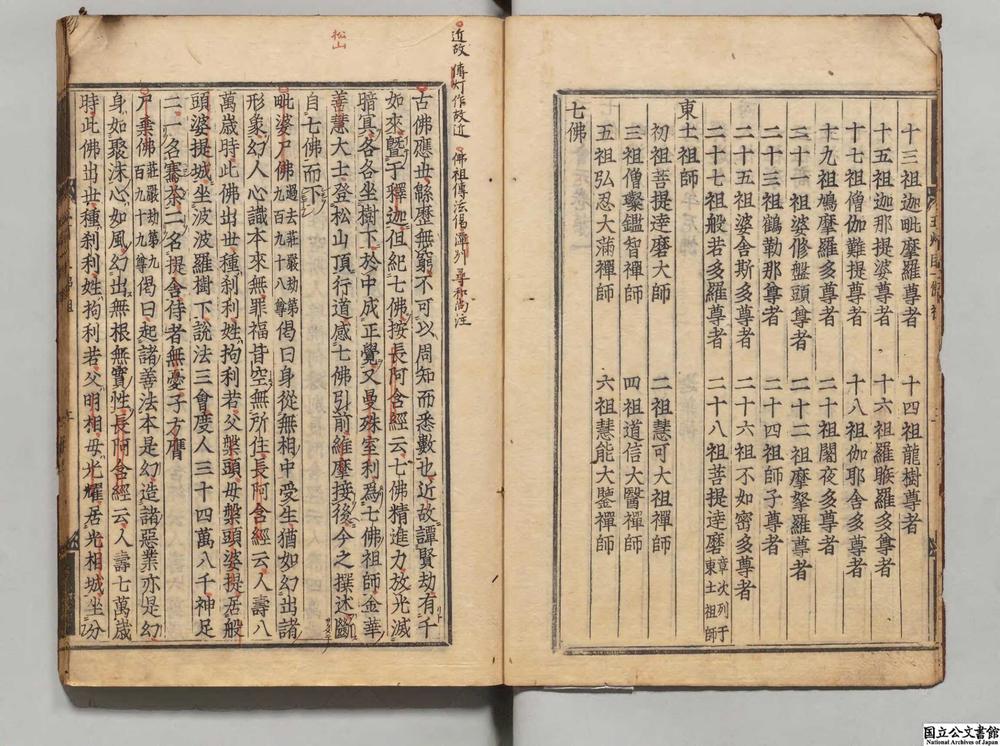 十三祖迦毗摩羅尊者　十四祖龍樹尊者
十五祖迦那提婆尊者　十六祖羅睺羅多尊者
十七祖僧伽難提尊者　十八祖伽耶舍多尊者
十九祖鳩摩羅多尊者　二十祖闍夜多尊者
二十一祖婆修盤頭尊者　二十二祖摩拏羅尊者
二十三祖鶴勒那尊者　二十四祖師子尊者
二十五祖婆舍斯多尊者　二十六祖不如密多尊者
二十七祖般若多羅尊者　二十八祖菩提達磨章次列于東土祖師
東土祖師
初祖菩提達磨大師　二祖慧可大祖禪師
三祖僧璨鑑智禪師　四祖道信大醫禪師
五祖弘忍大滿禪師　六祖慧能大鑒禪師
七佛
近故 傳灯作故近
佛祖傳法偈
古佛應世緜歷無窮不可以周知而悉數也近故譚賢劫有千
如來曁于釋迦但紀七佛按長阿含經云七佛精進力放光滅
暗冥各各坐樹下於中成正覺又曼殊室利爲七佛祖師金華
善慧大士登松山頂行道感七佛引前維摩接後今之撰述斷
自七佛而下
毗婆尸佛過去莊嚴劫第九百九十八尊偈曰身從無相中受生猶如幻出諸
形象幻人心識本來無罪福皆空無所住長阿含經云人壽八
萬歲時此佛出世種剎利姓拘利若父槃頭母槃頭婆提居般
頭婆提城坐波波羅樹下說法三會度人三十四萬八千神足
二一名騫荼二名提舍侍者無憂子方膺
尸棄佛莊嚴劫第九百九十九尊偈曰起諸善法本是幻造諸惡業亦是幻
身如聚沫心如風幻出無根無實性長阿含經云人壽七萬歲
時此佛出世種剎利姓拘利若父明相母光耀居光相城坐分
松山
国立公文書館
National Archives of Japan